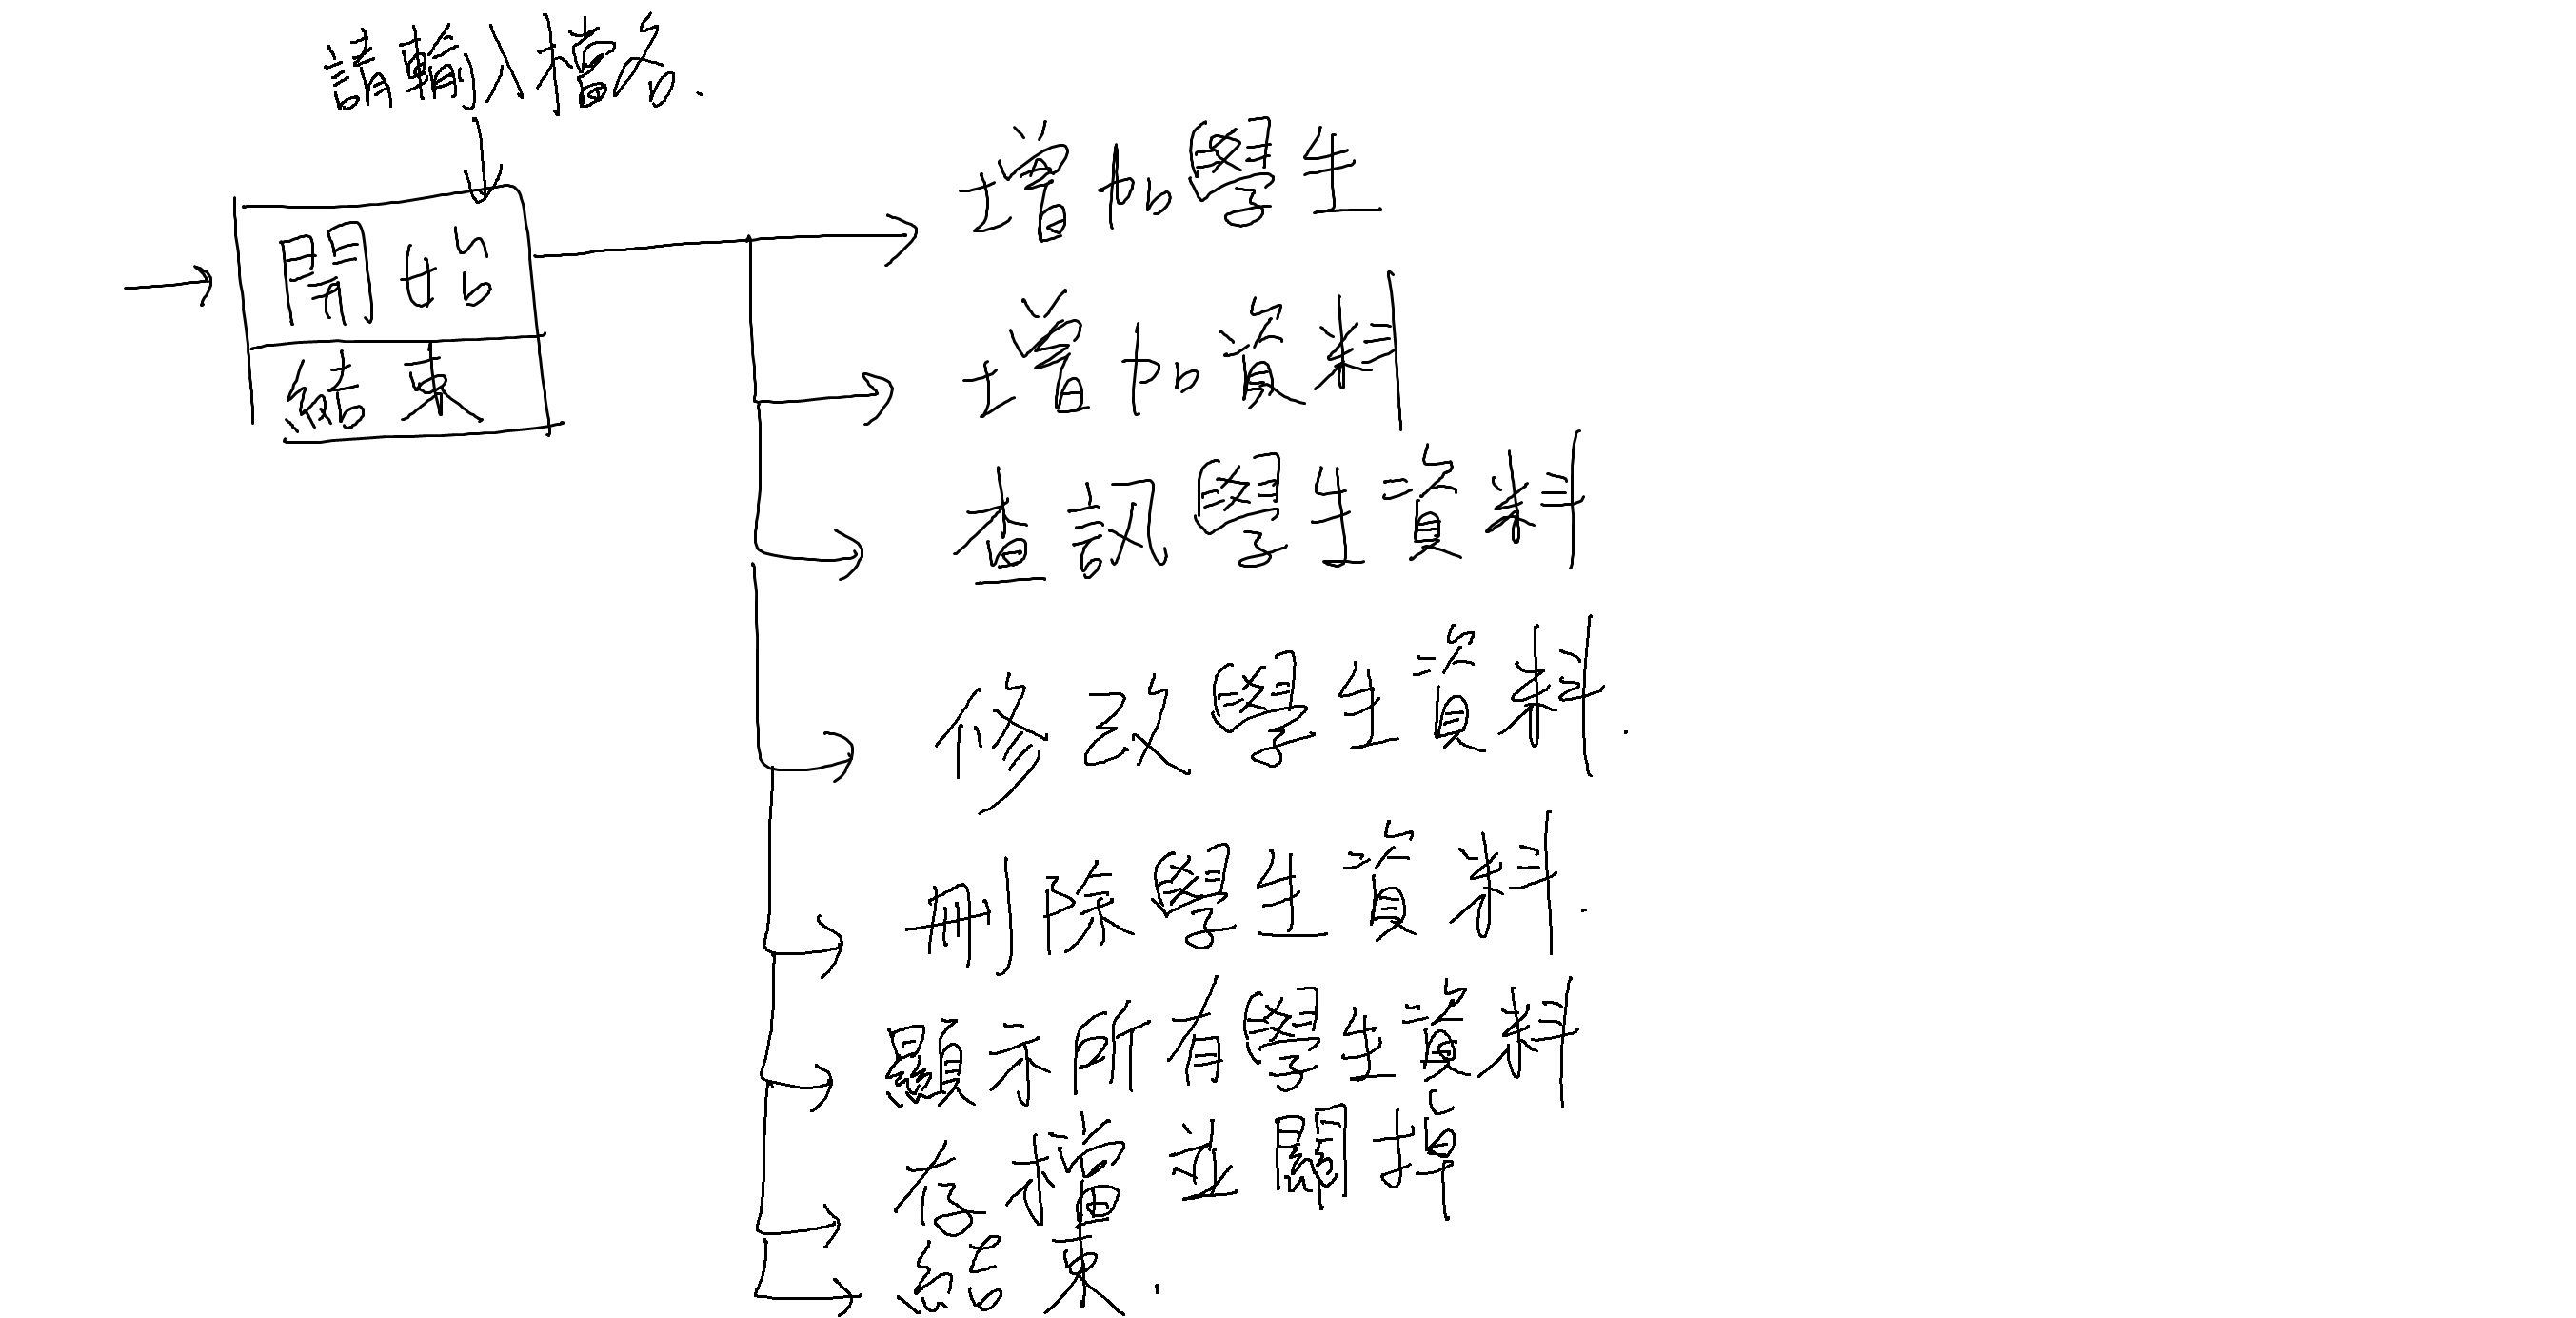 請輸入檔名.
開始
結束
增加學生
增加資料
查訊學生資料
修改學生資料.
刪除學生資料.
顯示所有學生資料
存檔並關掉
結束.